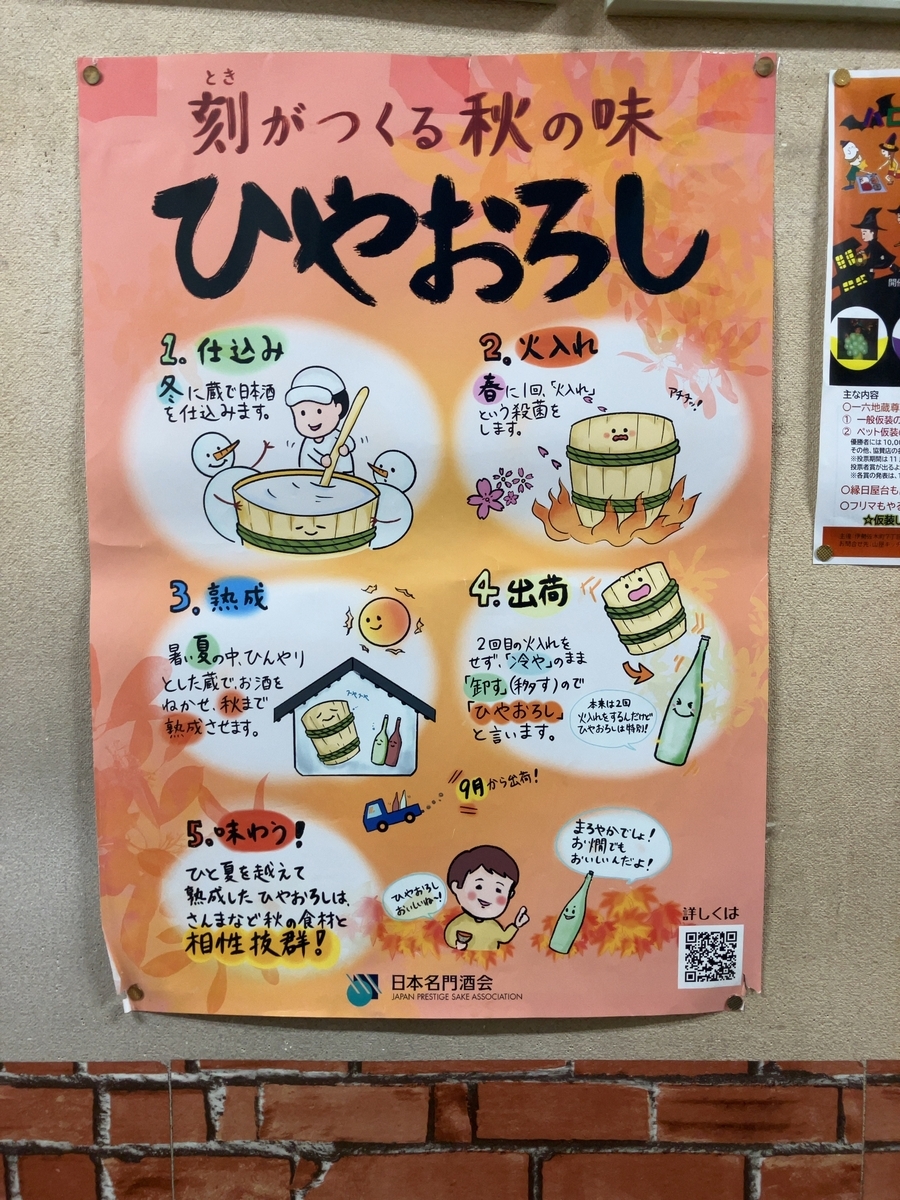 とき
刻がつくる秋の味
ひやおろし
1. 仕込み
冬に蔵で日本酒
を仕込みます。
2. 火入れ
春に1回、「火入れ」
という殺菌を
します。
アチチッ!
3. 熟成
暑い夏の中、ひんやり
とした蔵で、お酒を
ねかせ、秋まで
熟成させます。
4. 出荷
2回目の火入れを
せず、「冷や」のまま
「卸す」(移す)ので
「ひやおろし」
と言います。
本来は2回
火入れをするんだけど
ひやおろしは特別!
9月から出荷!
5. 味わう!
ひと夏を越えて
熟成したひやおろしは、
さんまなど秋の食材と
相性抜群!
ひやおろし
おいしいね〜!
まろやかでしょ!
お燗でも
おいしいんだよ!
詳しくは
日本名門酒会
JAPAN PRESTIGE SAKE ASSOCIATION
主な内容
〇一六地蔵尊
① 一般仮装の
② ペット仮装
優勝者には10,0
その他、協賛店の
※投票期間は11
投票者賞が出るよ
※各賞の発表は、
〇縁日屋台も
〇フリマもや
☆仮装し